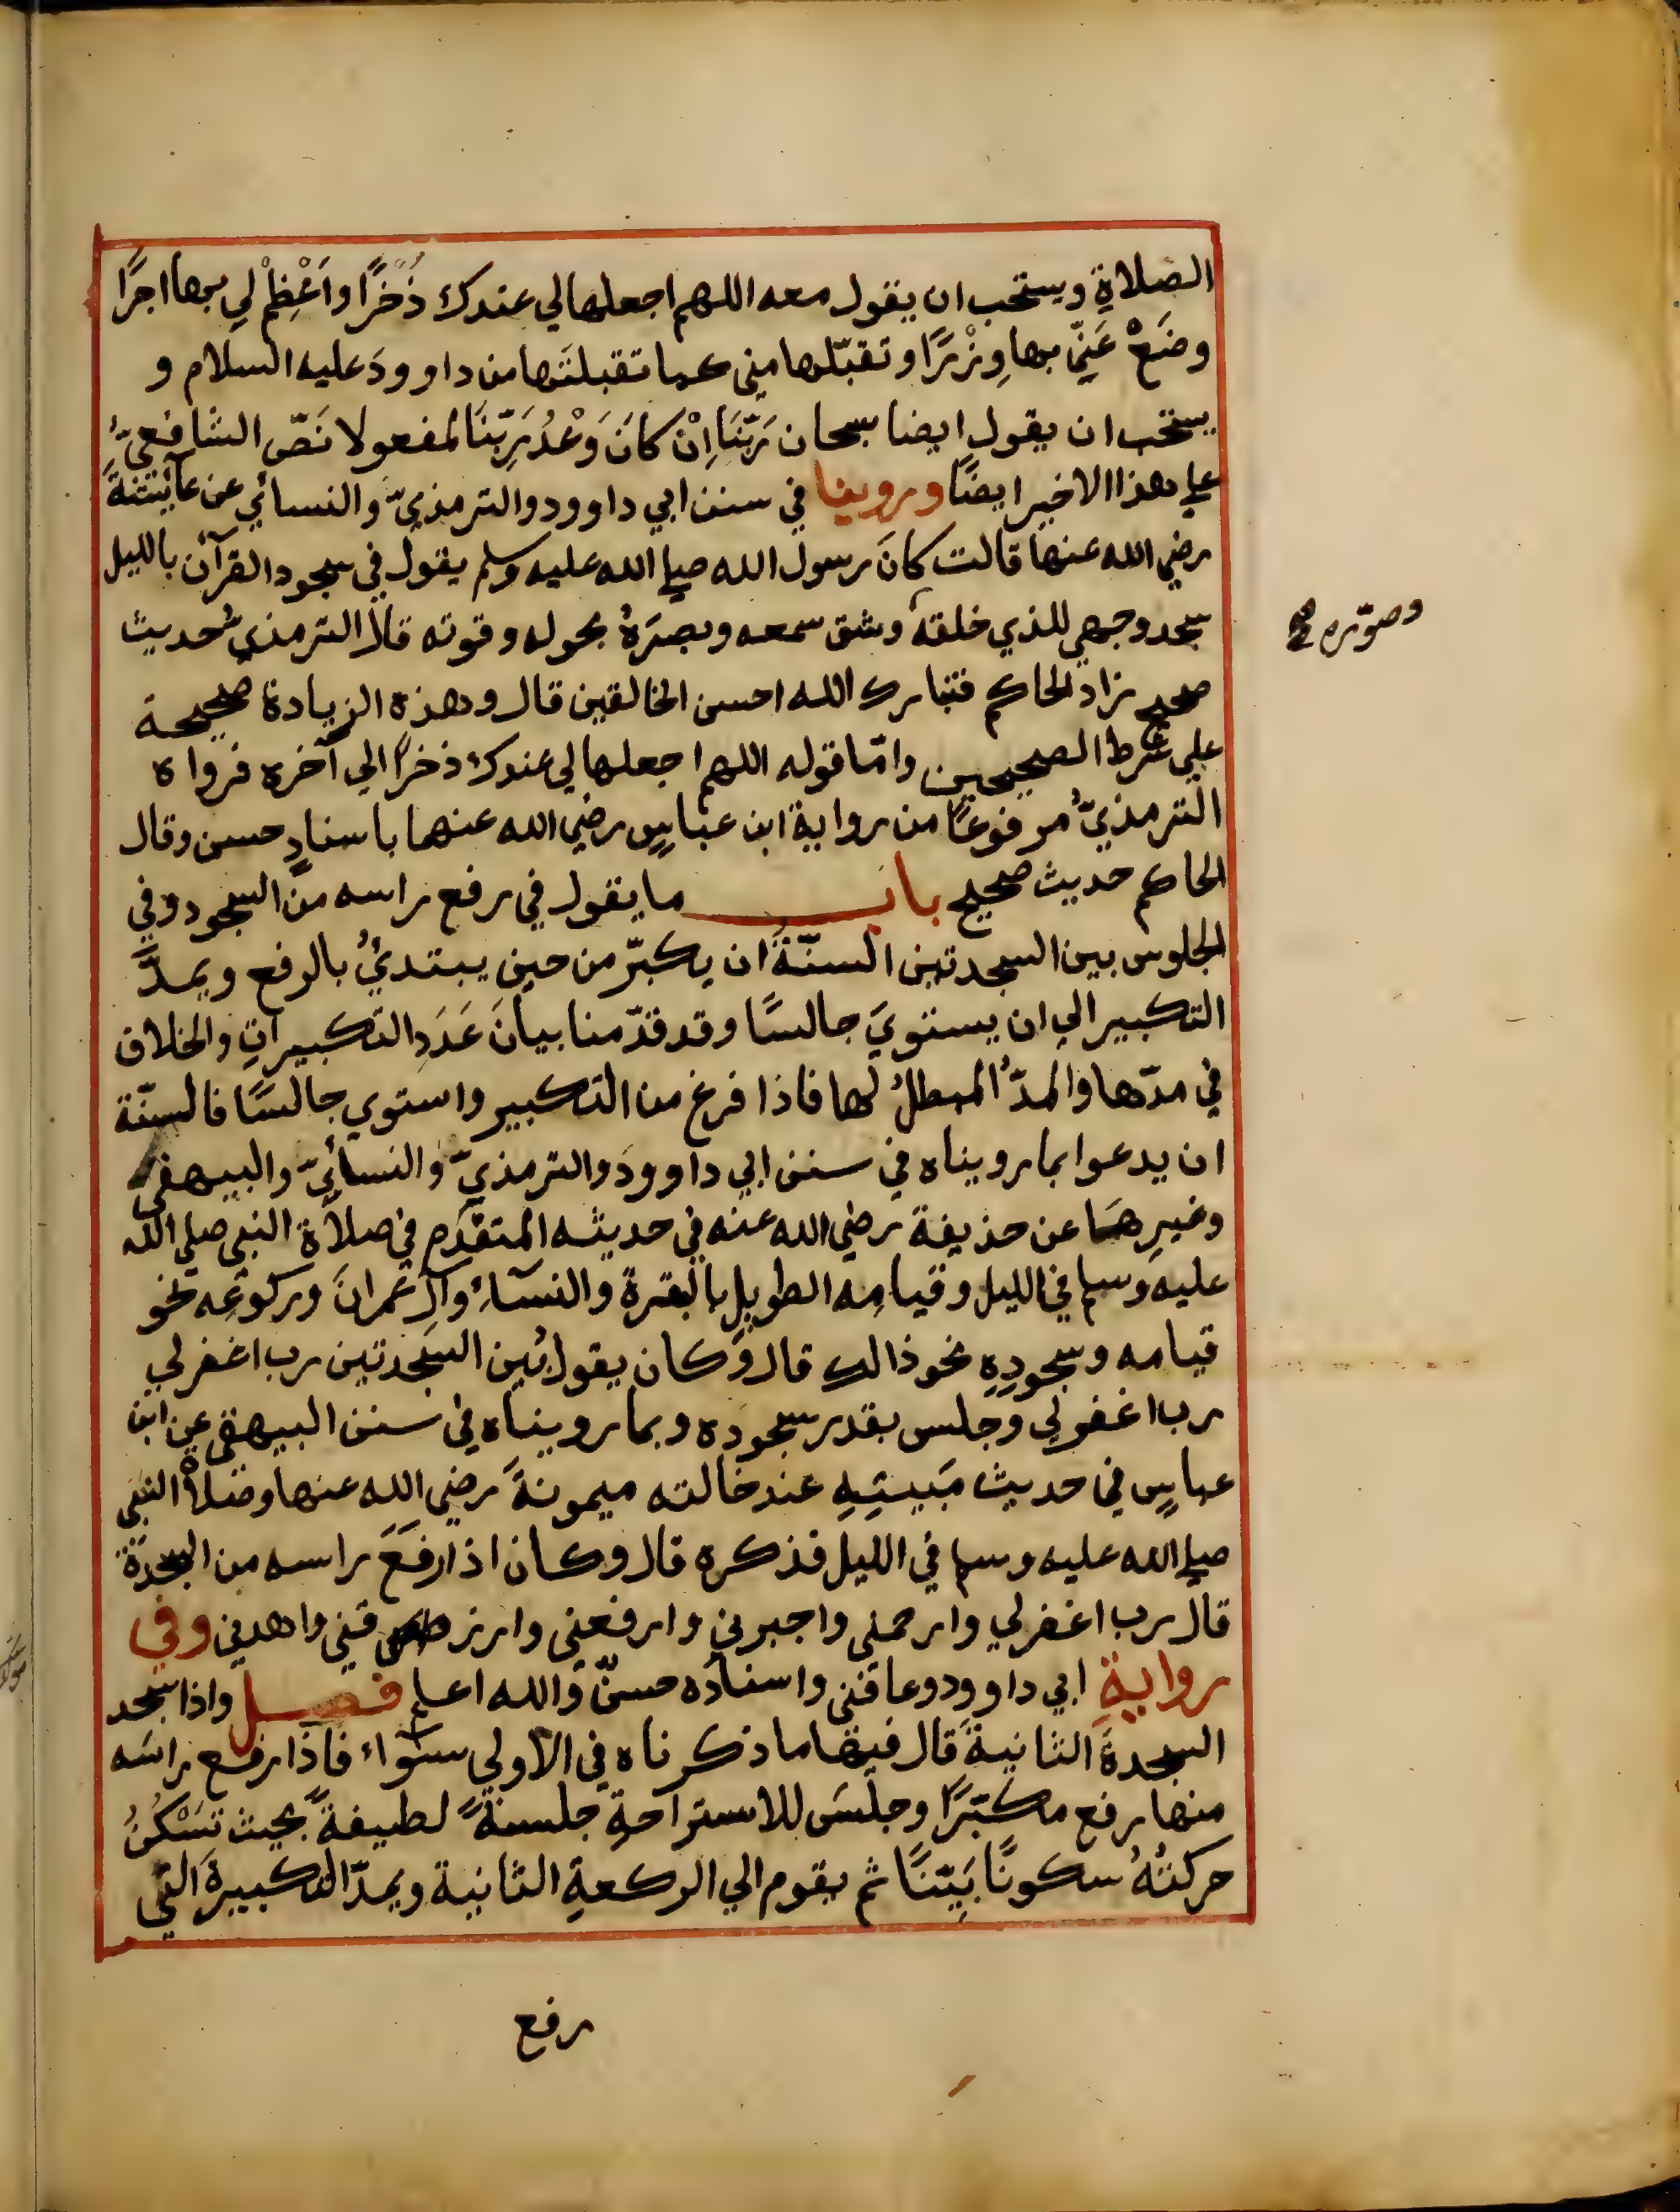 الصلاةِ ويستحب ان يقول معه اللهم اجعلها لي عندك ذُخْرًا واَعْظِمْ لِي بها اجرًا
وضَعْ عَنِّي بها وِزْرًا وتقبّلها مني كما تقبلتَها من داوودَ عليه السلام و
يستحب ان يقول ايضا سبحان رَبِّنَا اِنْ كانَ وَعْدُ رَبِّنَا لمفعولا نَصّ الشافعيُّ
علي هذا الاخير ايضًا وروينا في سنن ابي داوود والترمذيّ والنسائي عن عآئشةَ
رضي الله عنها قالت كانَ رسول الله صلي الله عليه وسلم يقول في سجود القرآن بالليل
سجد وجهي للذي خلقه وشق سمعه وبصرَهُ بحوله وقوته قال الترمذيُّ حديث
وصوّره صح
صحيح زاد الحاكم فتبارك الله احسن الخالقين قال وهذه الزيادة صحيحة
علي شرط الصحيحين وامّا قوله اللهم اجعلها لي عندك ذخرًا الي آخره فرواه
الترمذيّ مرفوعًا من رواية ابن عباسٍ رضي الله عنهما باسنادٍ حسن وقال
الحاكم حديث صحيح باب ما يقول في رفع راسه من السجود وفي
الجلوس بين السجدتين السنّةُ ان يكبّر من حين يبتدئُ بالرفع ويمدّ
التكبير الي ان يستويَ جالسًا وقد قدّمنا بيانَ عَدَدِ التكبيراتِ والخلاف
في مدّها والمدُّ المبطلُ لها فاذا فرغ من التكبير واستوي جالسًا فالسنّة
ان يدعوا بما رويناه في سنن ابي داوودَ والترمذيّ والنسائيّ والبيهقي
وغيرِهَا عن حذيفة رضي الله عنه في حديثه المتقدم في صلاة النبي صلي الله
عليه وسلم في الليل وقيامِه الطويلِ بالبقرة والنسآء وآل عمرانَ وركوعِه نحو
قيامه وسجودِهِ نحو ذالك قال وكان يقول بين السجدتين رب اغفر لي
رب اغفر لي وجلس بقدر سجوده وبما رويناه في سنن البيهقي عن ابن
عباسٍ في حديث مَبيتِهِ عند خالته ميمونةَ رضي الله عنها وصلاة النبي
صلي الله عليه وسلم في الليل فذكره قال وكان اذا رفَعَ راسه من السجدة
قال رب اغفر لي وارحمني واجبرني وارفعني وارزقني واهدني وفي
روايةِ ابي داوود وعافني واسناده حسنٌ والله اعلم فصل واذا سجد
السجدةَ الثانيةَ قال فيها ما ذكرناه في الاولي سوآء فاذا رفع راسَه
منها رفع مكبّرًا وجلسَ للاستراحةِ جلسةً لطيفةً بحيث تسْكُنُ
حركتُهُ سكونًا بَيِّنًا ثم يقوم الي الركعةِ الثانية ويمدّ التكبيرةَ التي
رفع